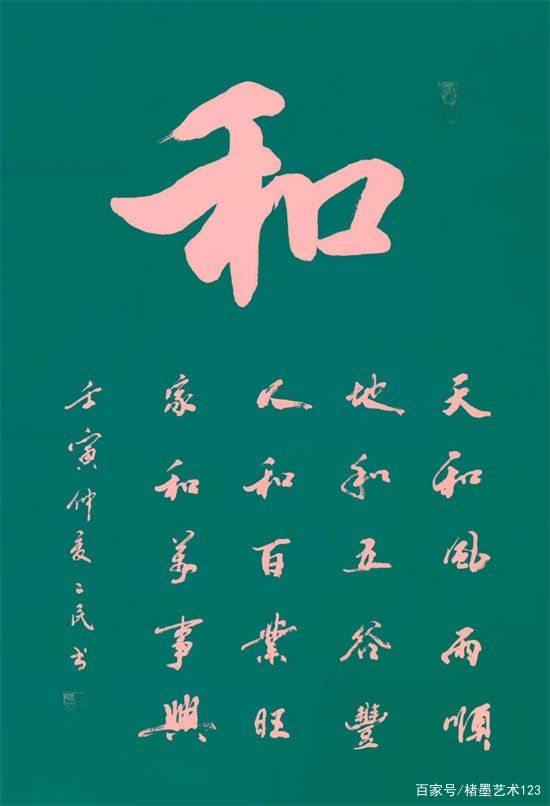 和
天和風雨順
地和五谷豐
人和百業旺
家和萬事興
壬寅仲夏之民书
百家号/楮墨艺术123